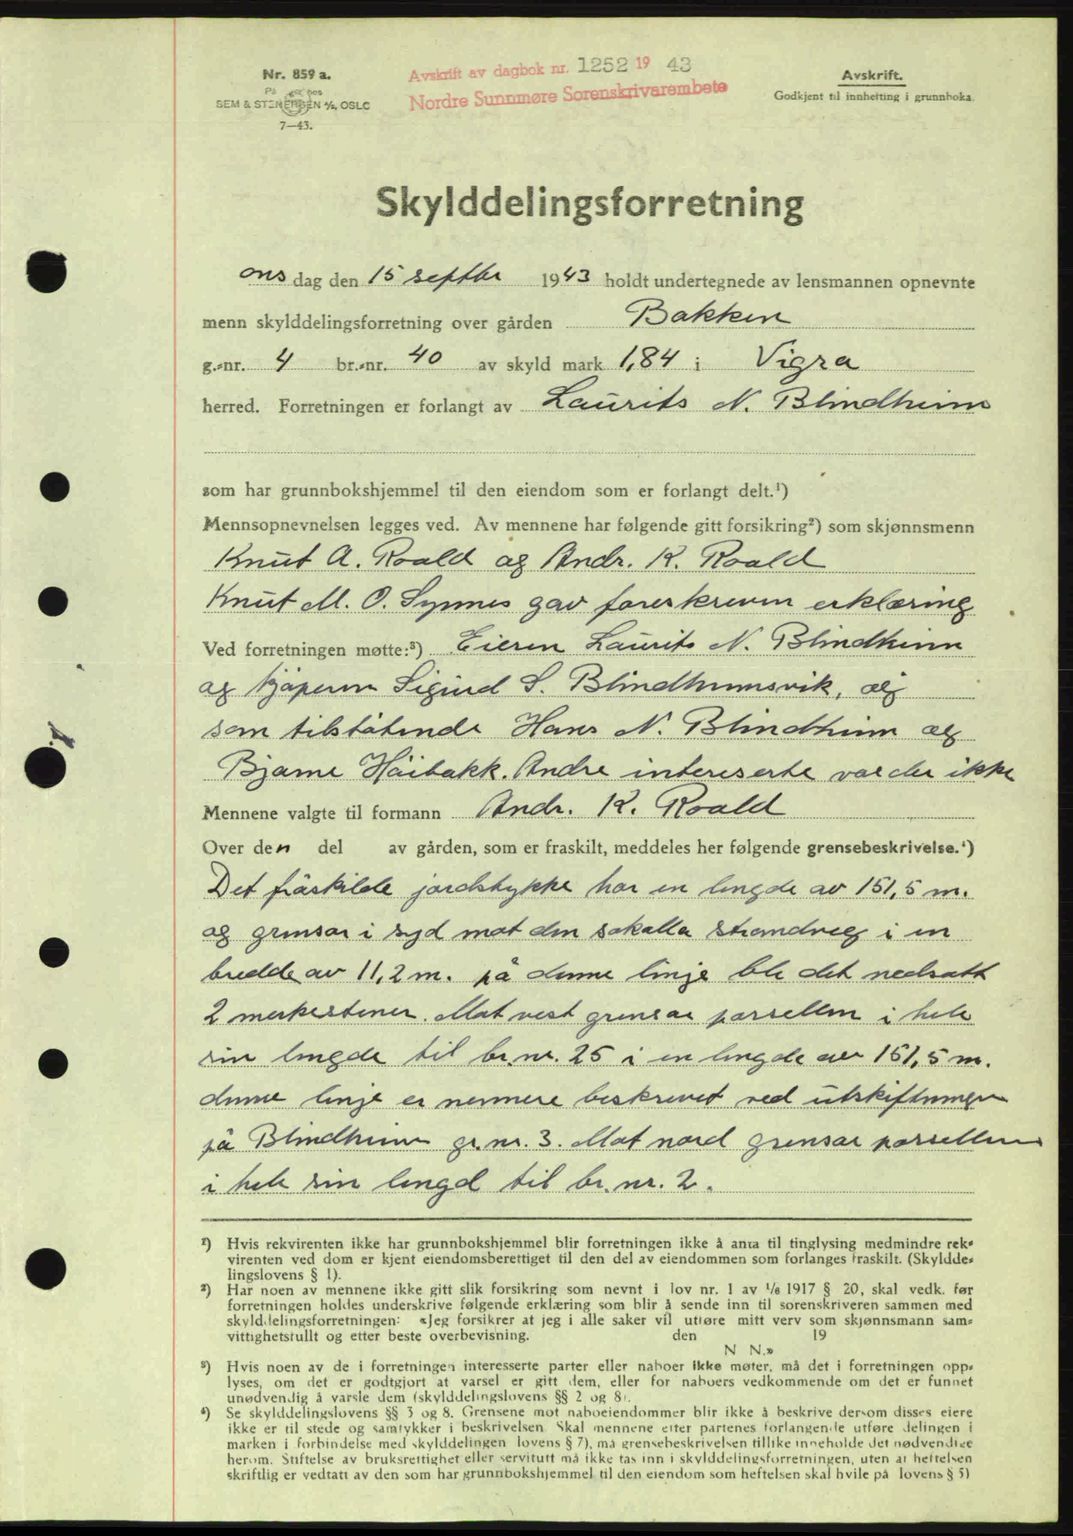 Nr. 859 a.
På
SEM & STENERSEN A/S, OSLO
7—43.
Avskrift av dagbok nr. 1252 19 43
Nordre Sunnmøre Sorenskrivarembete
Avskrift.
Godkjent til innhefting i grunnboka.
Skylddelingsforretning
ons dag den 15 septbr 1943 holdt undertegnede av lensmannen opnevnte
menn skylddelingsforretning over gården Bakken
g.-nr. 4 br.-nr. 40 av skyld mark 1,84 i Vigra
herred. Forretningen er forlangt av Laurits N. Blindheim
som har grunnbokshjemmel til den eiendom som er forlangt delt.¹)
Mennsopnevnelsen legges ved. Av mennene har følgende gitt forsikring²) som skjønnsmenn
Knut A. Roald og Andr. K. Roald
Knut M. O. Synnes gav foreskreven erklæring
Ved forretningen møtte:³) Eieren Laurits N. Blindheim
og kjøperen Sigurd S. Blindheimsvik, og
som tilstøtende Hans N. Blindheim og
Bjarne Höibakk. Andre intereserte var der ikke
Mennene valgte til formann Andr. K. Roald
Over den del av gården, som er fraskilt, meddeles her følgende grensebeskrivelse.⁴)
Det fråskilde jordstykke har en lengde av 151,5 m.
og grensar i syd mot den sokalla strandveg i en
bredde av 11,2 m. på denne linje ble det nedsatt
2 merkestener. Mot vest grensar parsellen i hele
sin lengde til br.nr. 25 i en lengde av 151,5 m.
denne linje er nermere beskrevet ved utskiftningen
på Blindheim gr.nr. 3. Mot nord grensar parsellen
i hele sin lengd til br.nr. 2.
¹) Hvis rekvirenten ikke har grunnbokshjemmel blir forretningen ikke å anta til tinglysing medmindre rek-
virenten ved dom er kjent eiendomsberettiget til den del av eiendommen som forlanges fraskilt. (Skyldde-
lingslovens § 1).
²) Har noen av mennene ikke gitt slik forsikring som nevnt i lov nr. 1 av 1/6 1917 § 20, skal vedk. før
forretningen holdes underskrive følgende erklæring som blir å sende inn til sorenskriveren sammen med
skylddelingsforretningen: «Jeg forsikrer at jeg i alle saker vil utføre mitt verv som skjønnsmann sam-
vittighetsfullt og etter beste overbevisning. den 19
N N.»
³) Hvis noen av de i forretningen interesserte parter eller naboer ikke møter, må det i forretningen opp-
lyses, om det er godtgjort at varsel er gitt dem, eller for naboers vedkommende om det er funnet
unødvendig å varsle dem (skylddelingslovens §§ 2 og 8).
⁴) Se skylddelingslovens §§ 3 og 8. Grensene mot naboeiendommer blir ikke å beskrive dersom disses eiere
ikke er til stede og samtykker i beskrivelsen. Skal mennene etter partenes forlangende utføre delingen i
marken i forbindelse med skylddelingen (lovens § 7), må grensebeskrivelsen tillike inneholde det nødvendige
herom. Stiftelse av bruksrettighet eller servitutt må ikke tas inn i skylddelingsforretningen, uten at heftelsen
skriftlig er vedtatt av den som har grunnbokshjemmel til den eiendom som heftelsen skal hvile på (lovens § 5)